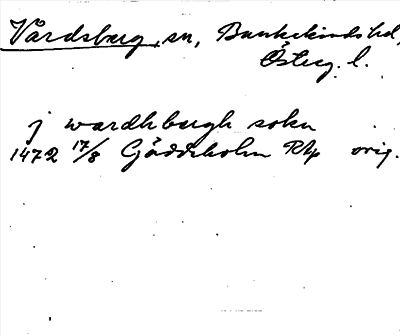 Vårdsberg, sn, Bankekinds hd,
Österg. l.
j wardhbergh sokn
1472 17/8 Gäddeholm RAp orig.